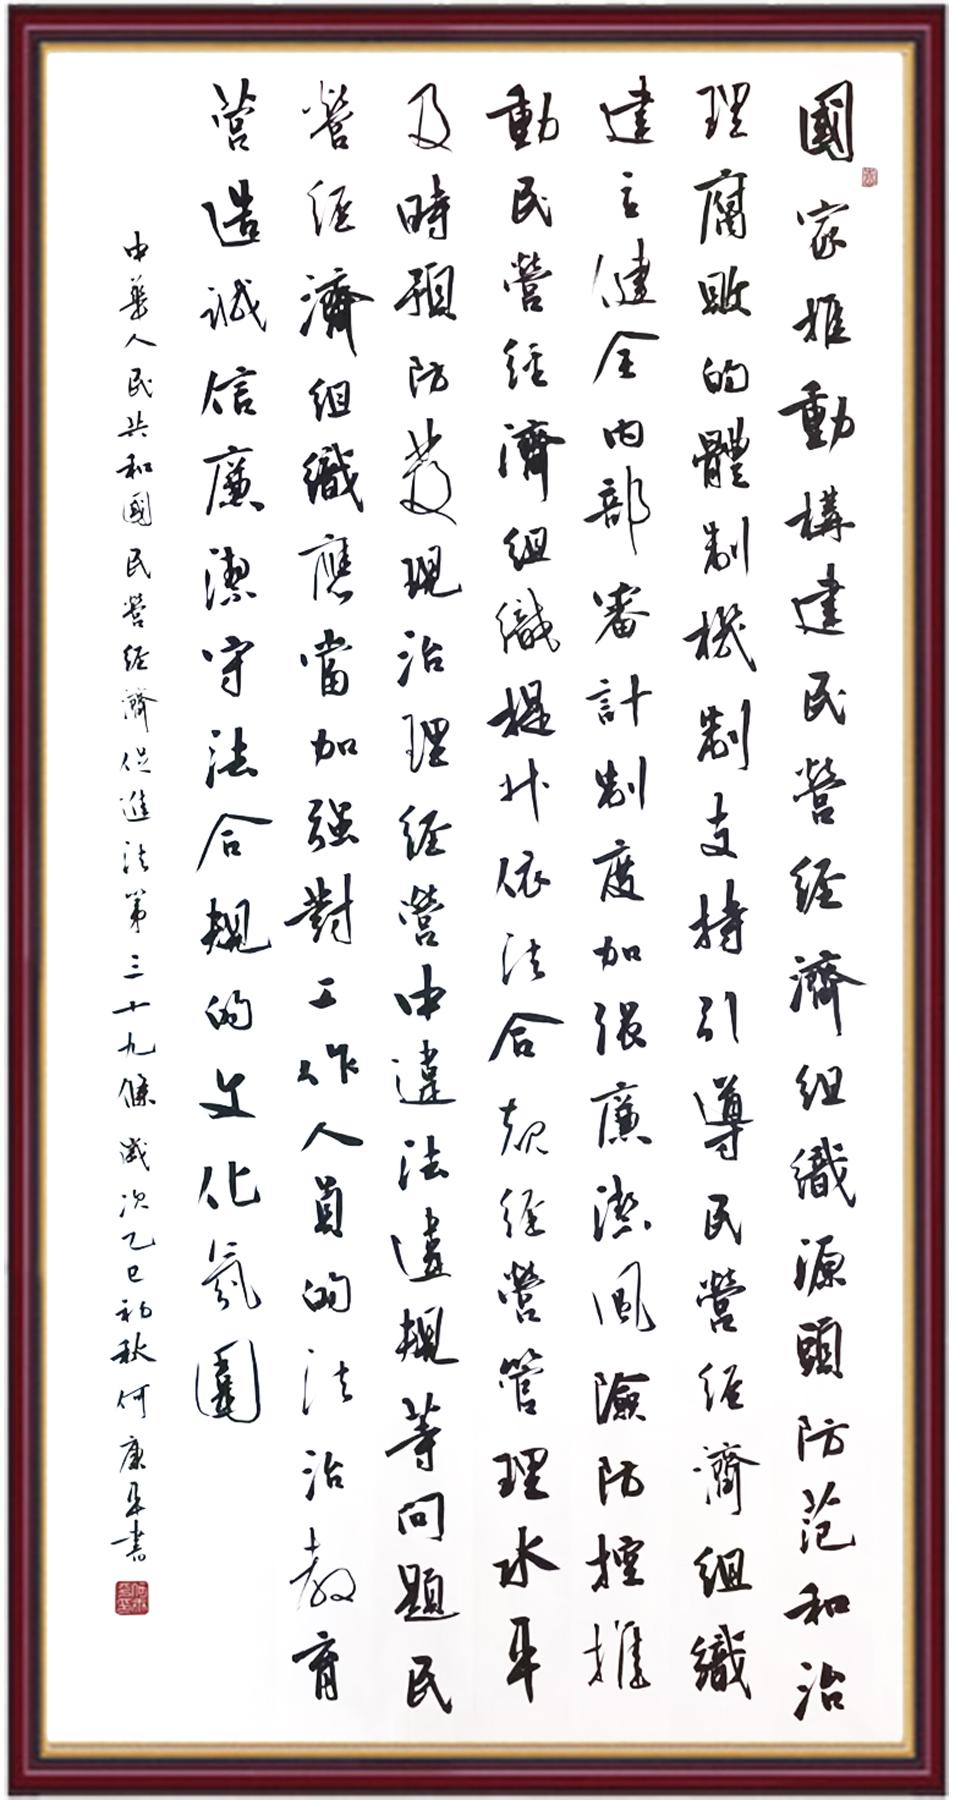 國家推動構建民營經濟組織源頭防范和治
理腐敗的體制機制支持引導民營經濟組織
建立健全内部審計制度加强廉潔風險防控推
動民營經濟組織提升依法合規經營管理水平
及時預防發現治理經營中違法違規等問題民
營經濟組織應當加强對工作人員的法治教育
營造誠信廉潔守法合規的文化氛圍
中華人民共和國民營經濟促進法第三十九條歲次乙巳初秋何康平書